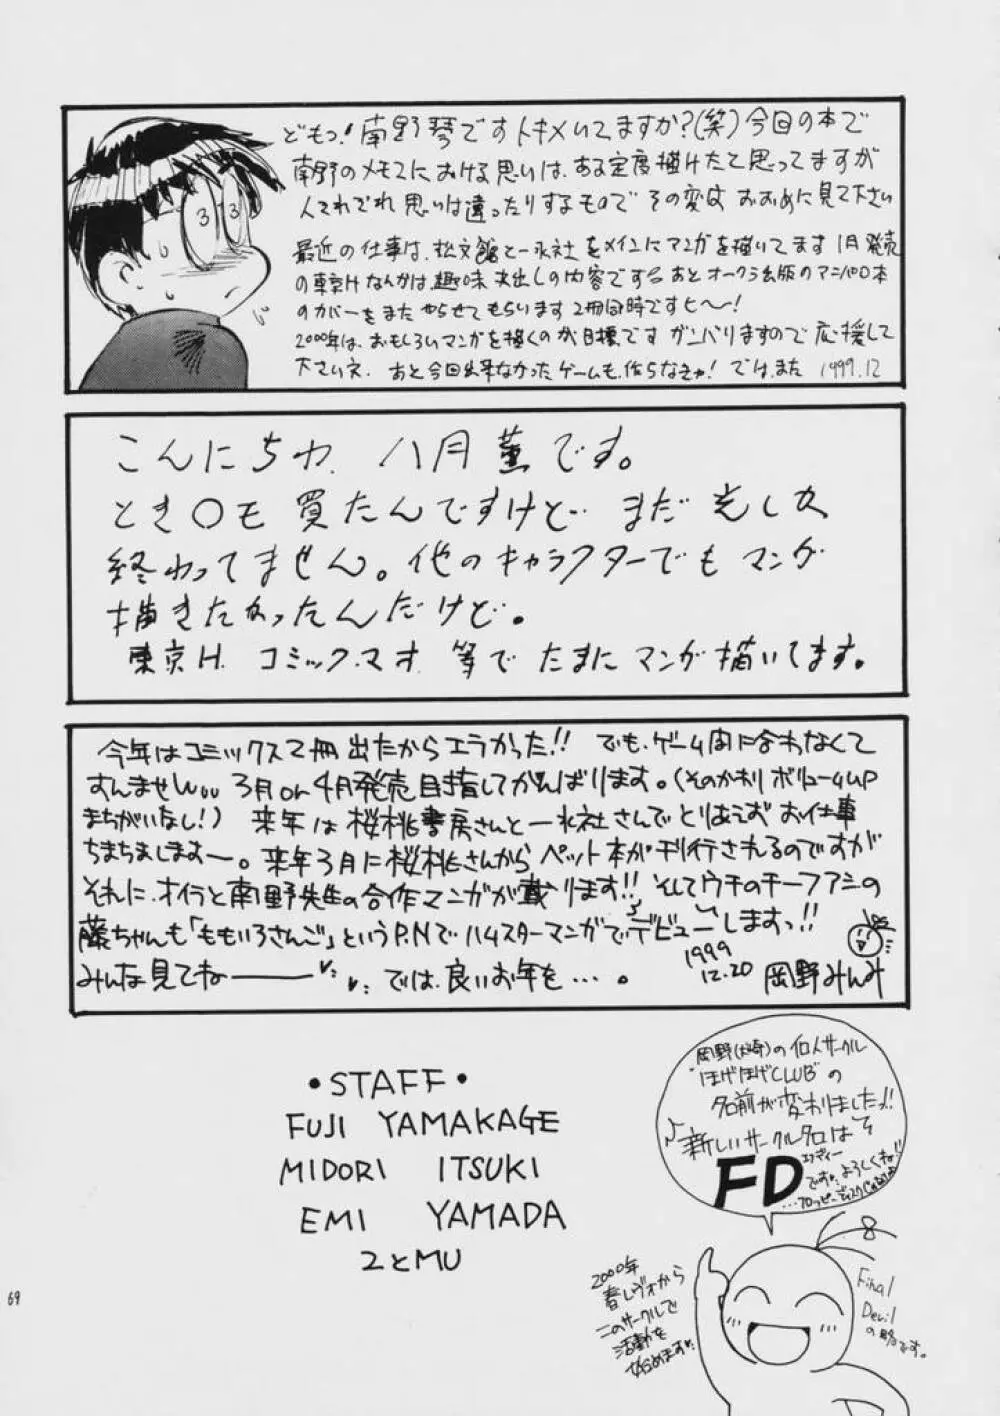 どもっ!南野琴ですトキメいてますか?(笑)今回の本で
南野のメモスにおける思いは、ある定度描けたと思ってますが
人それぞれ思いは違ったりするもので その変は おおめに見て下さい
最近の仕事は、松文館と一水社をメインにマンガを描いてます 1月発売
の東京Hなんかは、趣味丸出しの内容ですㄋ あとオークラ出版のアニパロ本
のカバーをまたやらせてもらいます 2冊同時ですヒ〜〜!
2000年は、おもしろいマンガを描くのが目標です ガンバりますので応援して
下さいネ. あと今回出来なかったゲームも、作らなきゃ! では、また 1999.12
こんにちわ. 八月薫です。
とき〇モ 買たんですけど… まだ
終わってません。他のキャラクターでもマンガ
描きたかったんだけど。
東京H. コミック.マオ. 等で たまに マンガ描いてます。
今年はコミックス2冊出たからエラかった!! でも、ゲーム間に合わなくて
すんませんｗ 3月or4月発売目指してがんばります。(そのかわりボリュームUP
まちがいなし!) 来年は桜桃書房さんと一水社さんでとりあえずお仕事
ちまちまします〜。来年3月に桜桃さんからペット本が刊行されるのですが
それに、オイラと南野先生の合作マンガが載ります!! そしてウチのチーフアシの
藤ちゃんも「ももいろさんご」というP.Nでハムスターマンガでデビューしますっ!!
みんな見てねーーー♥ では、良いお年を…。
1999
12.20
岡野みんみ
•STAFF•
FUJI YAMAKAGE
MIDORI ITSUKI
EMI YAMADA
ユとMU
の個人サークル
"ほげほげCLUB"の
名前が変わりましたッ!!
♪新しいサークル名は
FD
エフディー
です♥よろしくね!!
…フロッピーディスク
2000年
春レヴォから
このサークルで
活動を
始めます♥
Final
Devil
の略です。
69